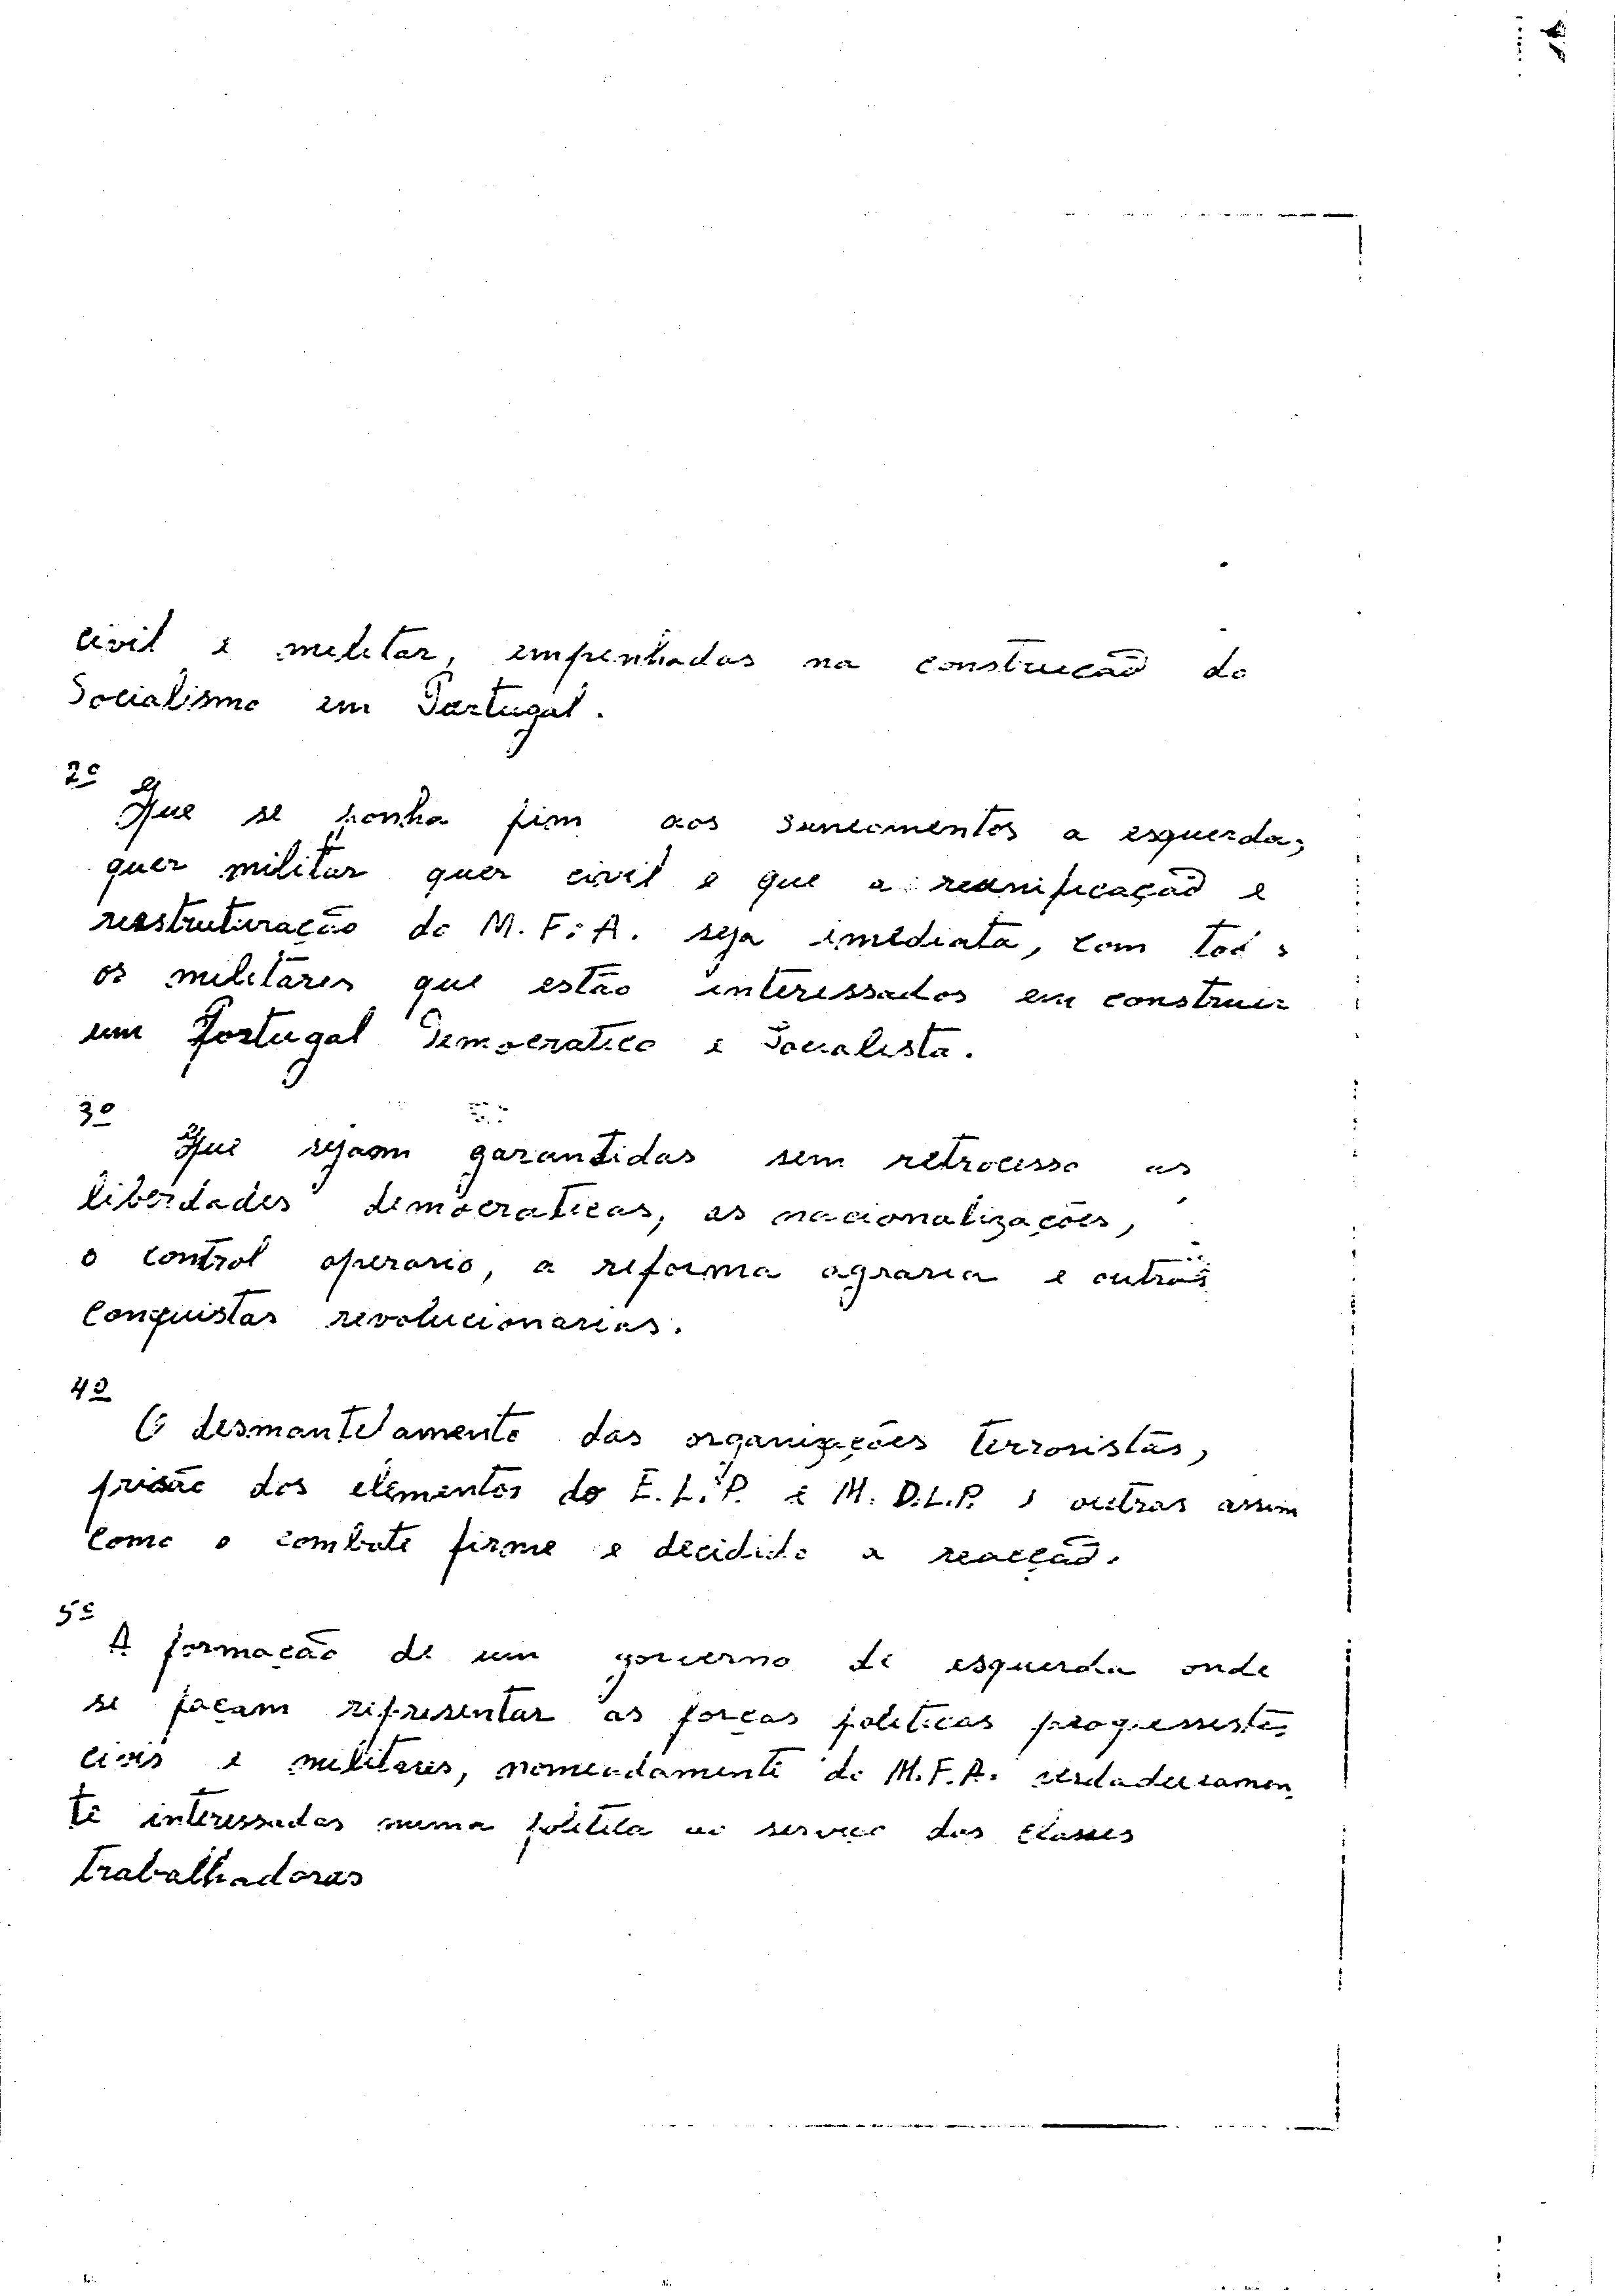 civil e militar, empenhadas na construção do
Socialismo em Portugal.
2º
Que se ponha fim aos saneamentos a esquerda,
quer militar quer civil e que a reunificação e
reestruturação do M.F.A. seja imediata, com tod s
os militares que estão interessados em construir
um Portugal Democratico e Socialista.
3º
Que sejam garantidas sem retrocesso as
liberdades democraticas, as nacionalizações,
o control operario, a reforma agraria e outras
Conquistas revolucionarias.
4º
O desmantelamento das organizações terroristas,
prisão dos elementos do E.L.P. e M.D.L.P. e outras assim
como o combate firme e decidido a reacção.
5º
A formação de um governo de esquerda onde
se façam representar as forças politicas progressistas
civis e militares, nomeadamente do M.F.A. verdadeiramen
te interessadas numa politica ao serviço das classes
trabalhadoras